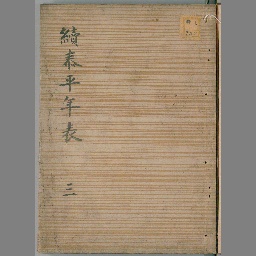 續泰平年表 三